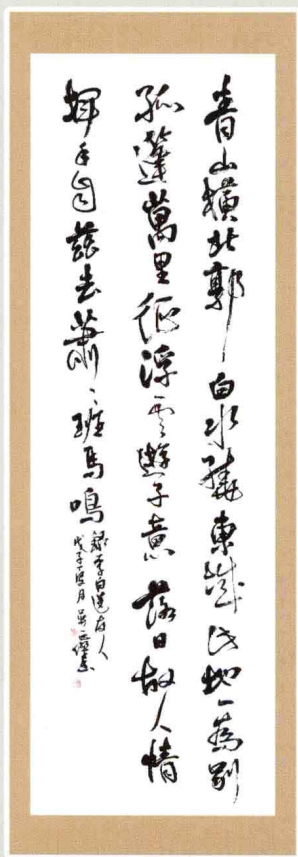 青山橫北郭白水繞東城此地一為別
孤蓬萬里征浮雲遊子意落日故人情
揮手自茲去蕭〻班馬鳴
錄李白送友人
戊子